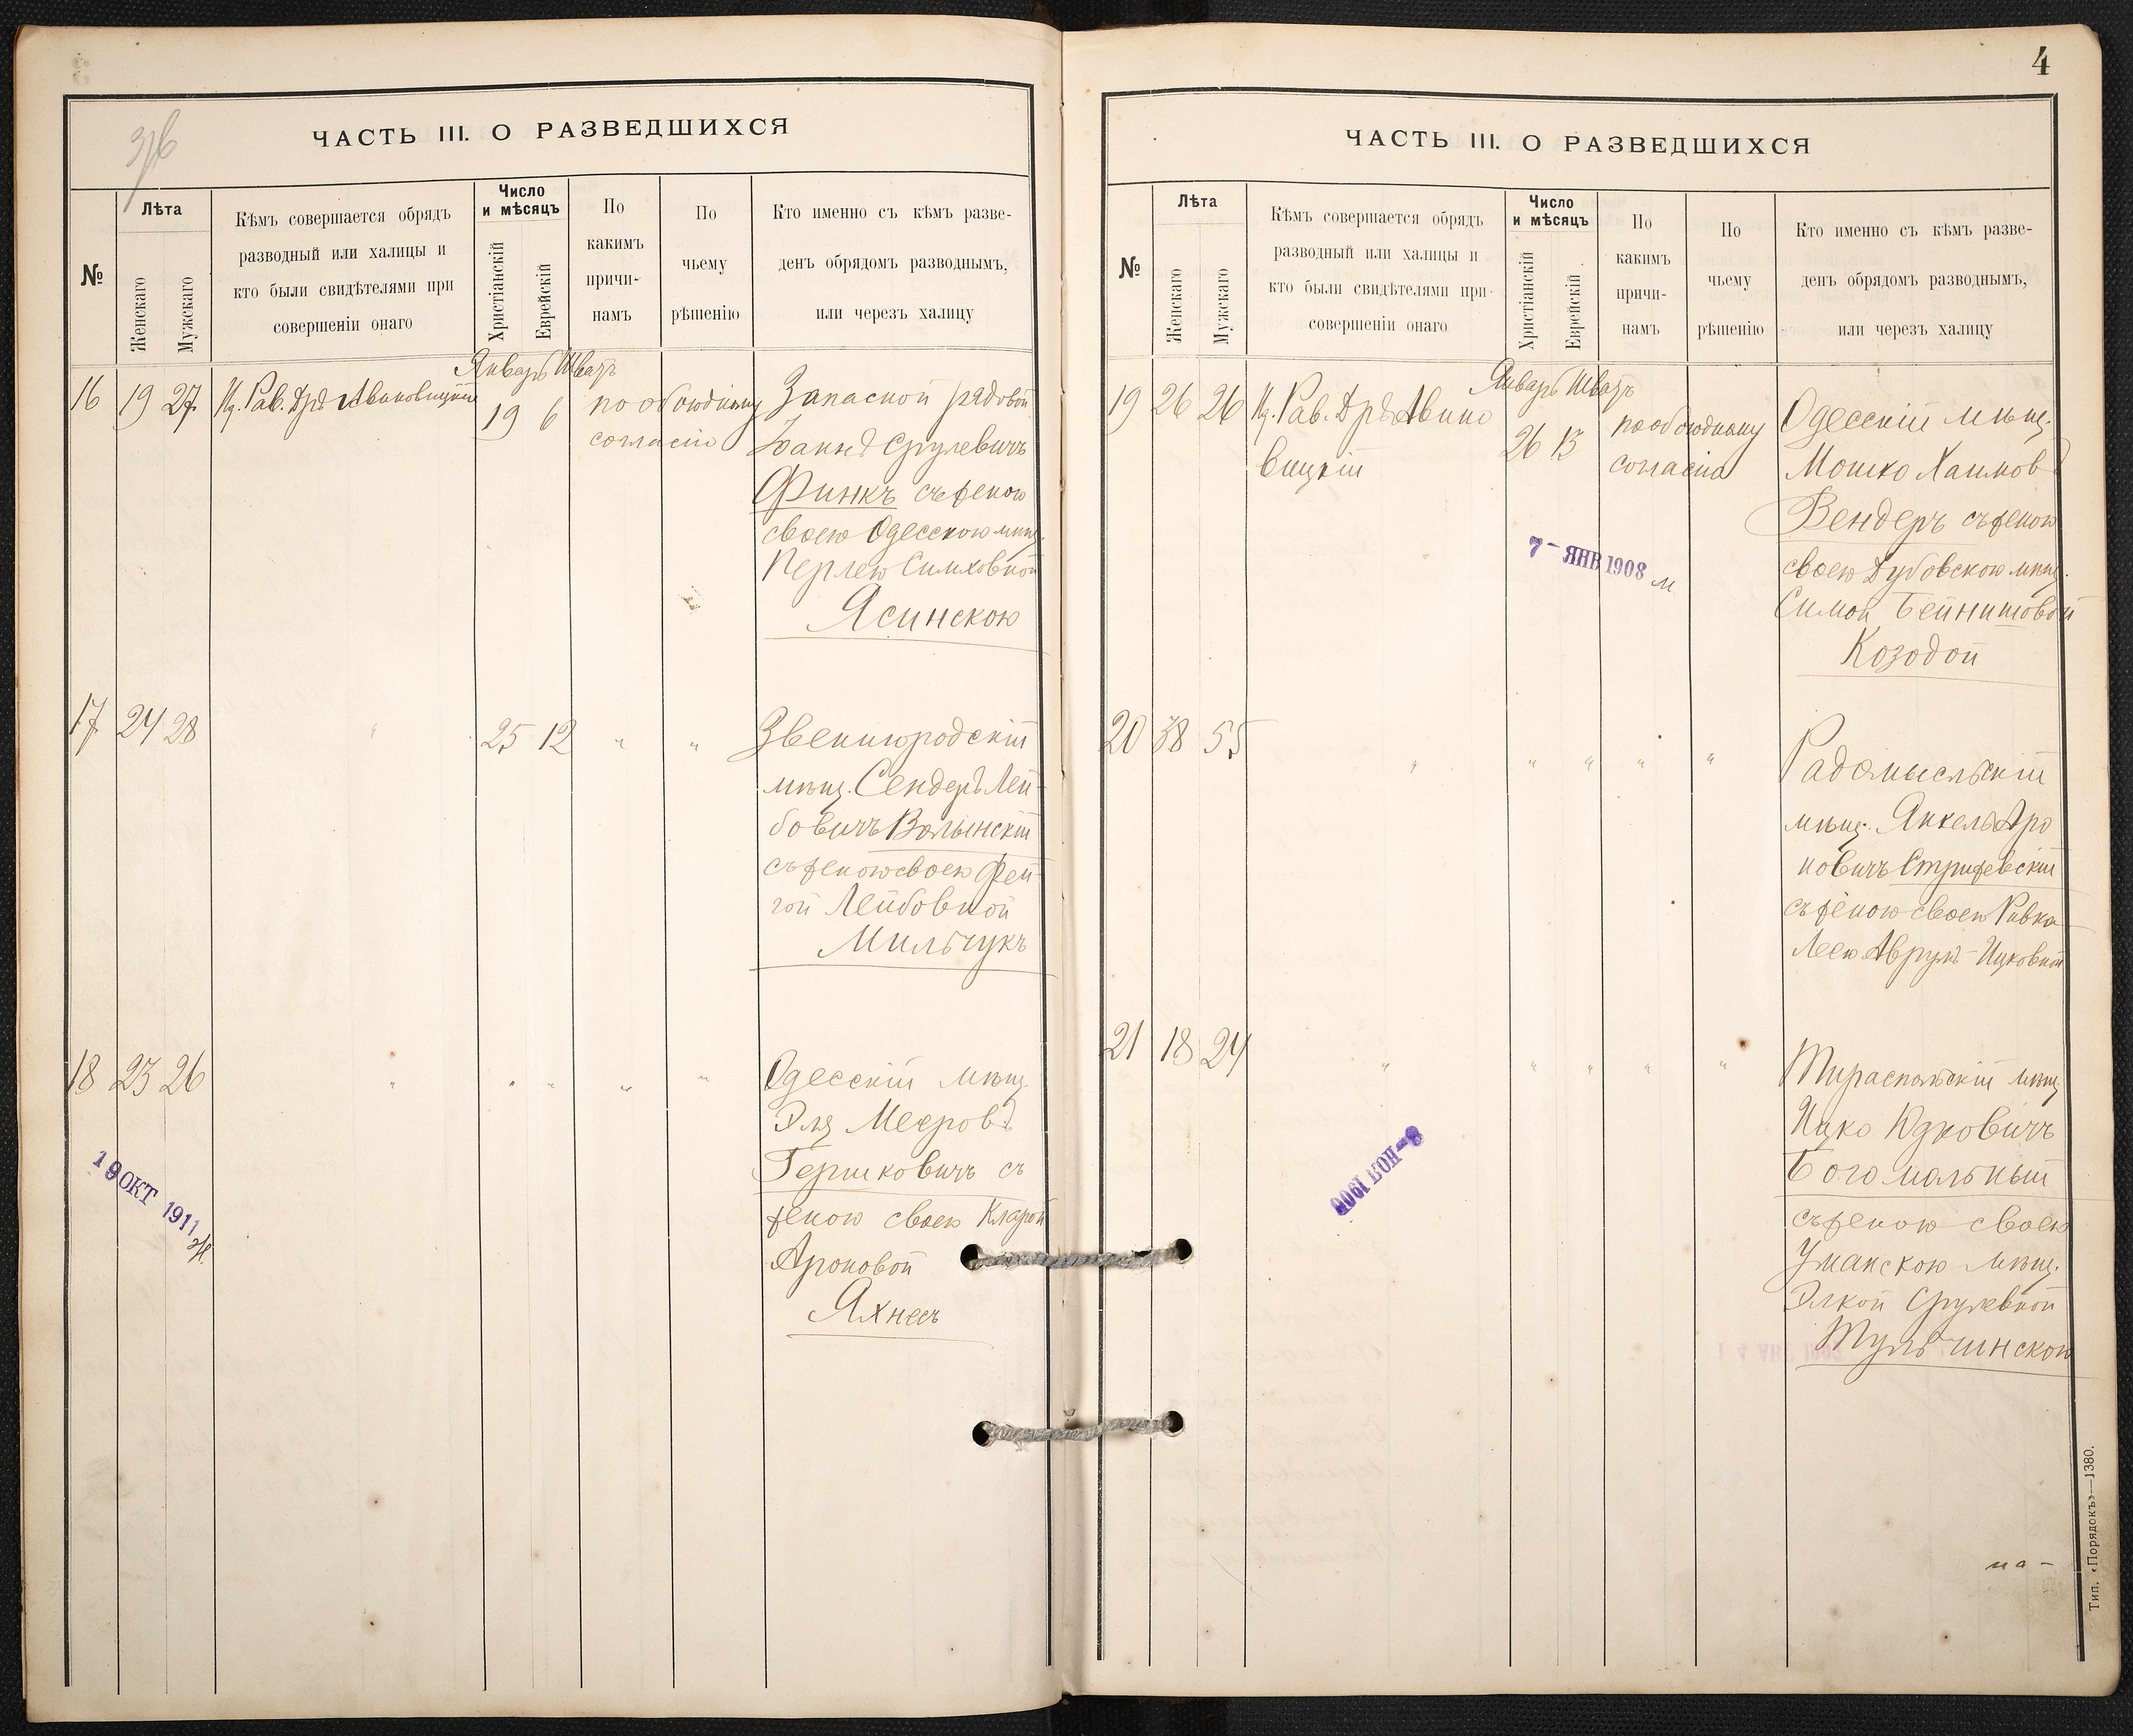 3/6
ЧАСТЬ III. О РАЗВЕДШИХСЯ
№
Лѣта
Женскаго
Мужскаго
Кѣмъ совершается обрядъ
разводный или халицы и
кто были свидѣтелями при
совершеніи онаго
Число
и мѣсяцъ
Христіанскій
Еврейскій
По
какимъ
причи-
намъ
По
чьему
рѣшенію
Кто именно съ кѣмъ разве-
денъ обрядомъ разводнымъ,
или черезъ халицу
Январь Шватъ
16 19 27 Ка. Рав. Дръ Авиновицкій 19 6
по обоюдному
согласію
Запасной рядовой
Срулевичъ
Финкъ съ женою
своею Одесскою мѣщ.
Перлею Симховной
Ясинскою
17 24 28 " 25 12 " "
Звенигородскій
мѣщ. Сендеръ Лей-
бовичъ Волынскій
съ женою своею Фей-
гой Лейбовной
Мильчукъ
18 23 26 " " " " "
Одесскій мѣщ.
Эля Мееровъ
Гершковичъ съ
женою своею Кларой
Ароновой
Яхнесъ
19 ОКТ 1911
4
ЧАСТЬ III. О РАЗВЕДШИХСЯ
№
Лѣта
Женскаго
Мужскаго
Кѣмъ совершается обрядъ
разводный или халицы и
кто были свидѣтелями при-
совершеніи онаго
Число
и мѣсяцъ
Христіанскій
Еврейскій
По
какимъ
причи-
намъ
По
чьему
рѣшенію
Кто именно съ кѣмъ разве-
денъ обрядомъ разводнымъ,
или черезъ халицу
Январь Шватъ
19 26 26 Ка. Рав. Дръ Авино
вицкій
26 13
по обоюдному
согласію
Одесскій мѣщ.
Мошко Хаимовъ
Вендеръ съ женою
своею Дубовскою мѣщ.
Симой Бейнишовой
Козодой
7 - ЯНВ 1908 м
20 38 55 " " " " "
Радомысльскій
мѣщ. Янкель Аро
новичъ Стрижевскій
съ женою своею Ривка
Леею Аврумъ-Ицковной
21 18 24 " " " " "
Тираспольскій мѣщ.
Ицко Юдковичъ
Богомольный
съ женою своею
Уманскою мѣщ.
Элкой Срулевной
Тульчинскою
8 - НОЯ 1900
на -
Тип. «Порядокъ»—1380.